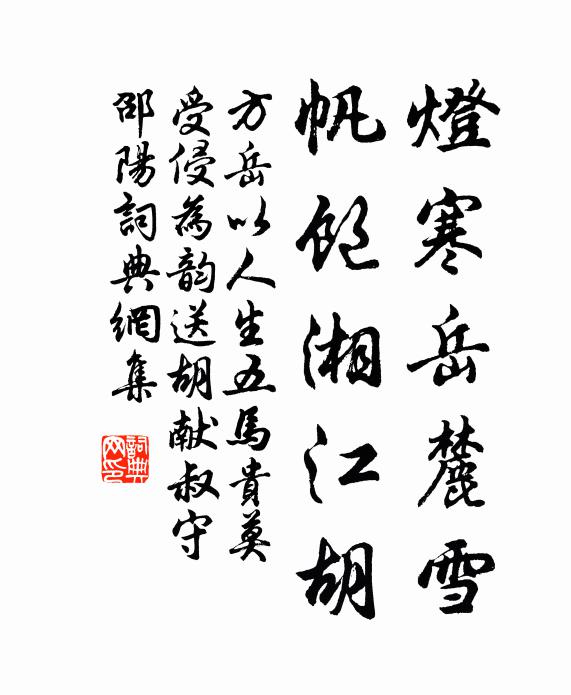 燈寒岳麓雪
帆飽湘江胡
方岳以人生五馬貴莫
受侵為韵送胡献叔守
邵陽詞典網集
詞典
网印